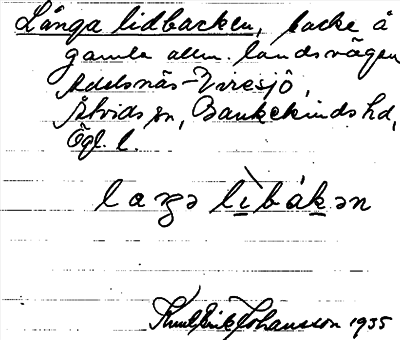 Långa lidbacken, backe å
gamla allm. landsvägen
Adelsnäs-Viresjö,
Åtvids sn, Bankekinds hd,
Ögl. l.
laŋə lìbákən
Knut Erik Johansson 1935